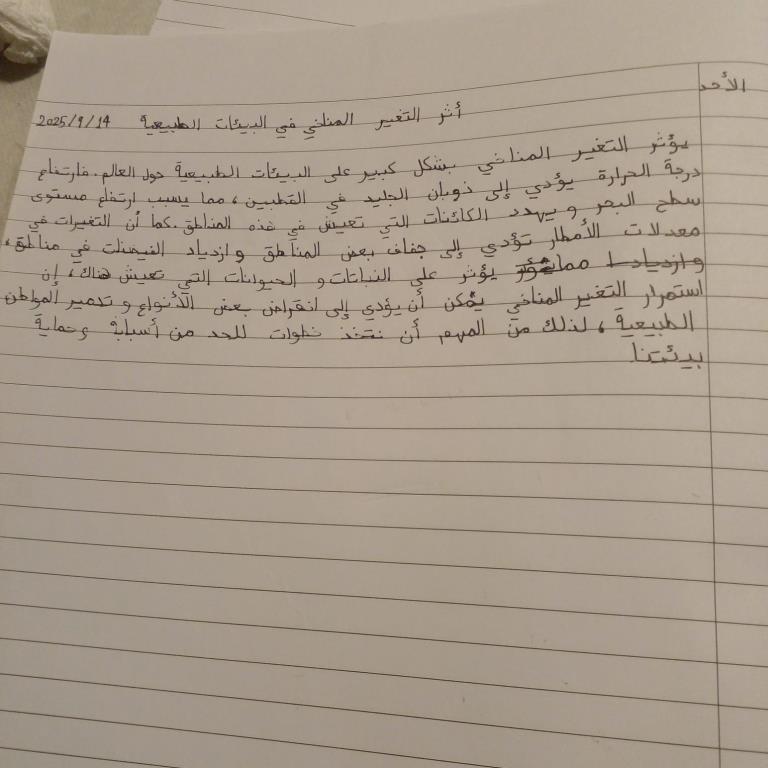 الأحد
أثر التغير المناخي في البيئات الطبيعية 2025/9/14
يؤثر التغير المناخي بشكل كبير على البيئات الطبيعية حول العالم. فارتفاع
درجة الحرارة يؤدي إلى ذوبان الجليد في القطبين، مما يسبب ارتفاع مستوى
سطح البحر ويهدد الكائنات التي تعيش في هذه المناطق. كما أن التغيرات في
معدلات الأمطار تؤدي إلى جفاف بعض المناطق وازدياد الفيضانات في مناطق،
مما يؤثر على النباتات والحيوانات التي تعيش هناك، إن
استمرار التغير المناخي يمكن أن يؤدي إلى انقراض بعض الأنواع وتدمير المواطن
الطبيعية، لذلك من المهم أن نتخذ خطوات للحد من أسبابة وحماية
بيئتنا.